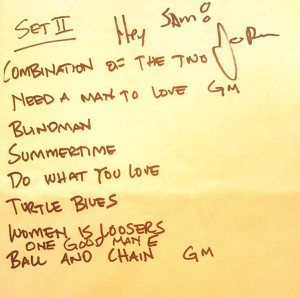 SET II Hey SAM!
COMBINATION OF THE TWO
NEED A MAN TO LOVE GM
BLINDMAN
SUMMERTIME
DO WHAT YOU LOVE
TURTLE BLUES
WOMEN IS LOOSERS
ONE GOOD MAN E
BALL AND CHAIN GM